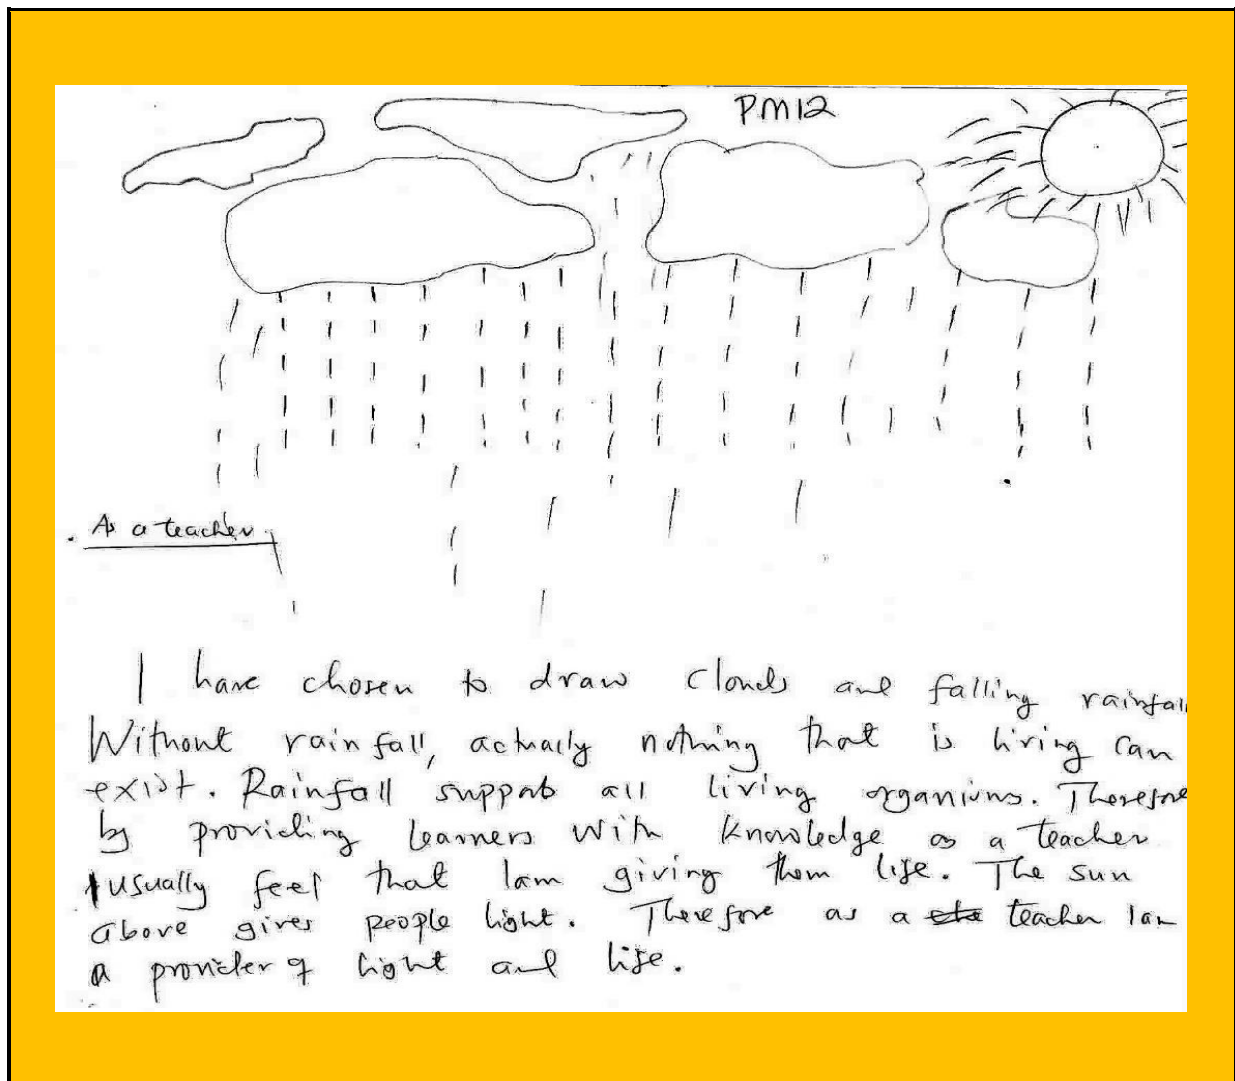 PM12
As a teacher.
I have chosen to draw clouds and falling rainfall
Without rainfall, actually nothing that is living can
exist. Rainfall supports all living organisms. Therefore
by providing learners with knowledge as a teacher
I usually feel that I am giving them life. The sun
above gives people light. Therefore as a teacher I am
a provider of light and life.